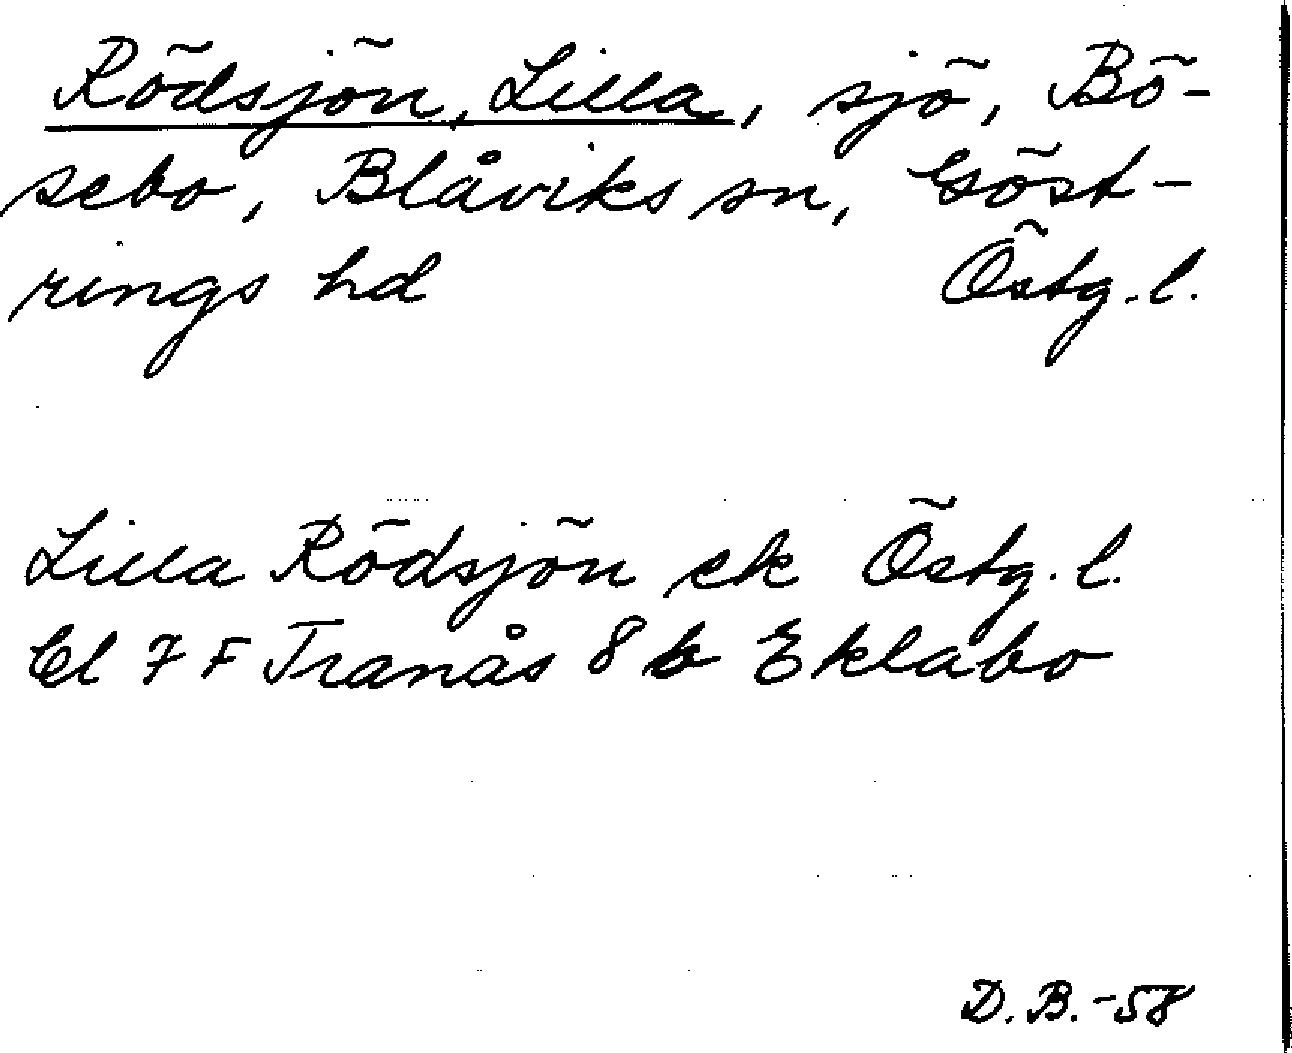 Rödsjön, Lilla, sjö, Bö-
sebo, Blåviks sn, Göst-
rings hd Östg. l.
Lilla Rödsjön ek Östg. l.
Bl 7 F Tranås 8 b Eklabo
D. B. -58